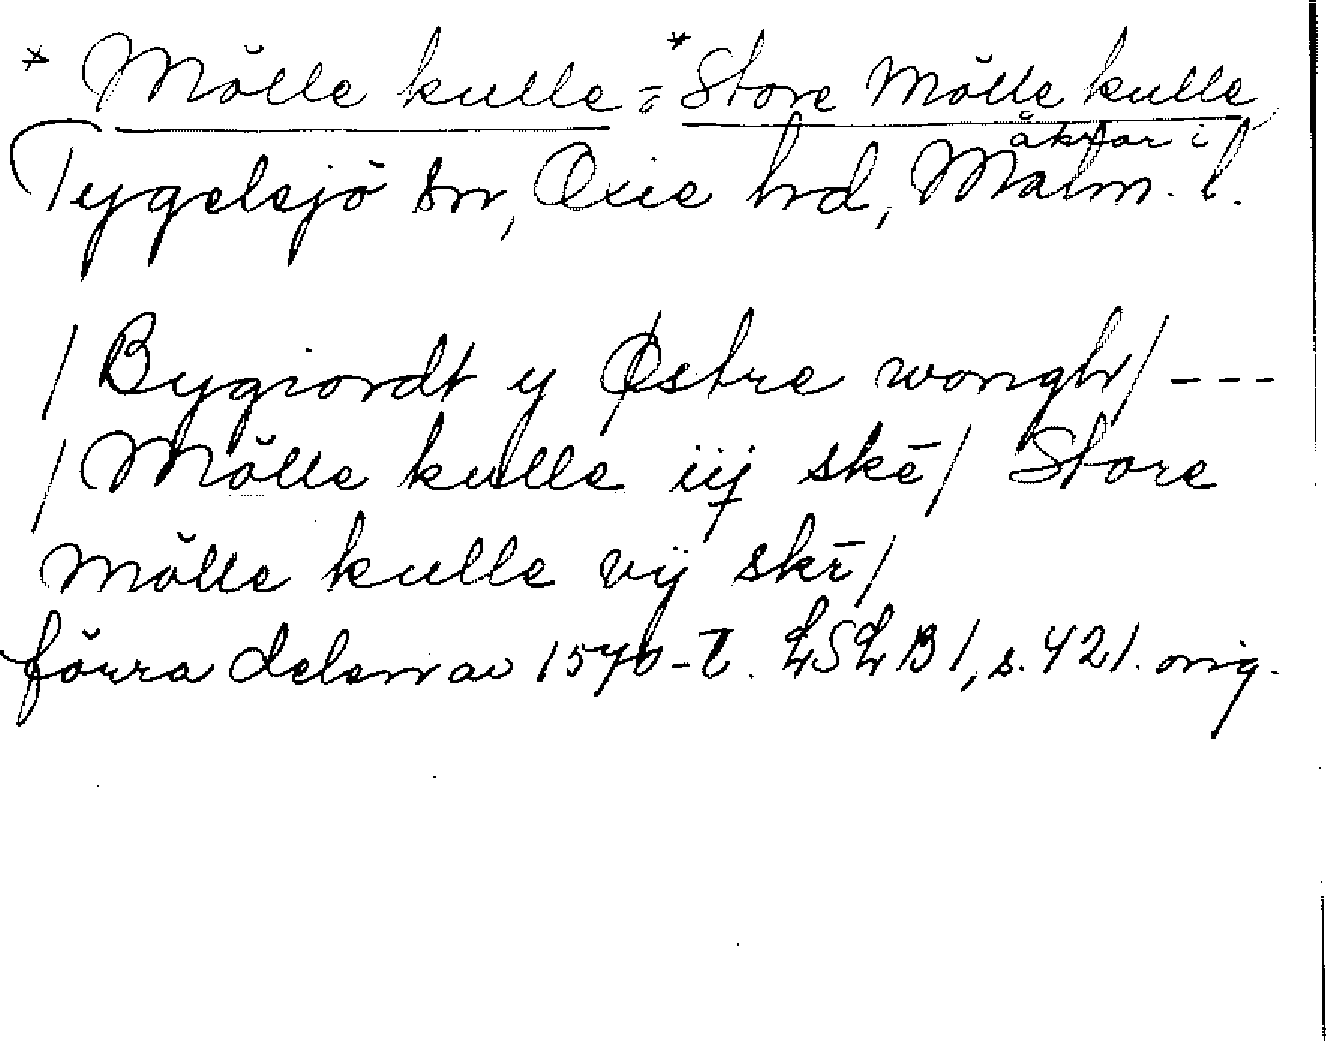 * Mölle kulle = * Store Mölle kulle,
åkrar i
Tygelsjö sn, Oxie hrd, Malm. l.
/ Bygiordt y Østre wongh / ---
/ Mölle kulle iij skē / Store
Mölle kulle vij skē /
förra delen av 1570-t. LSLB 1, s. 421. orig.